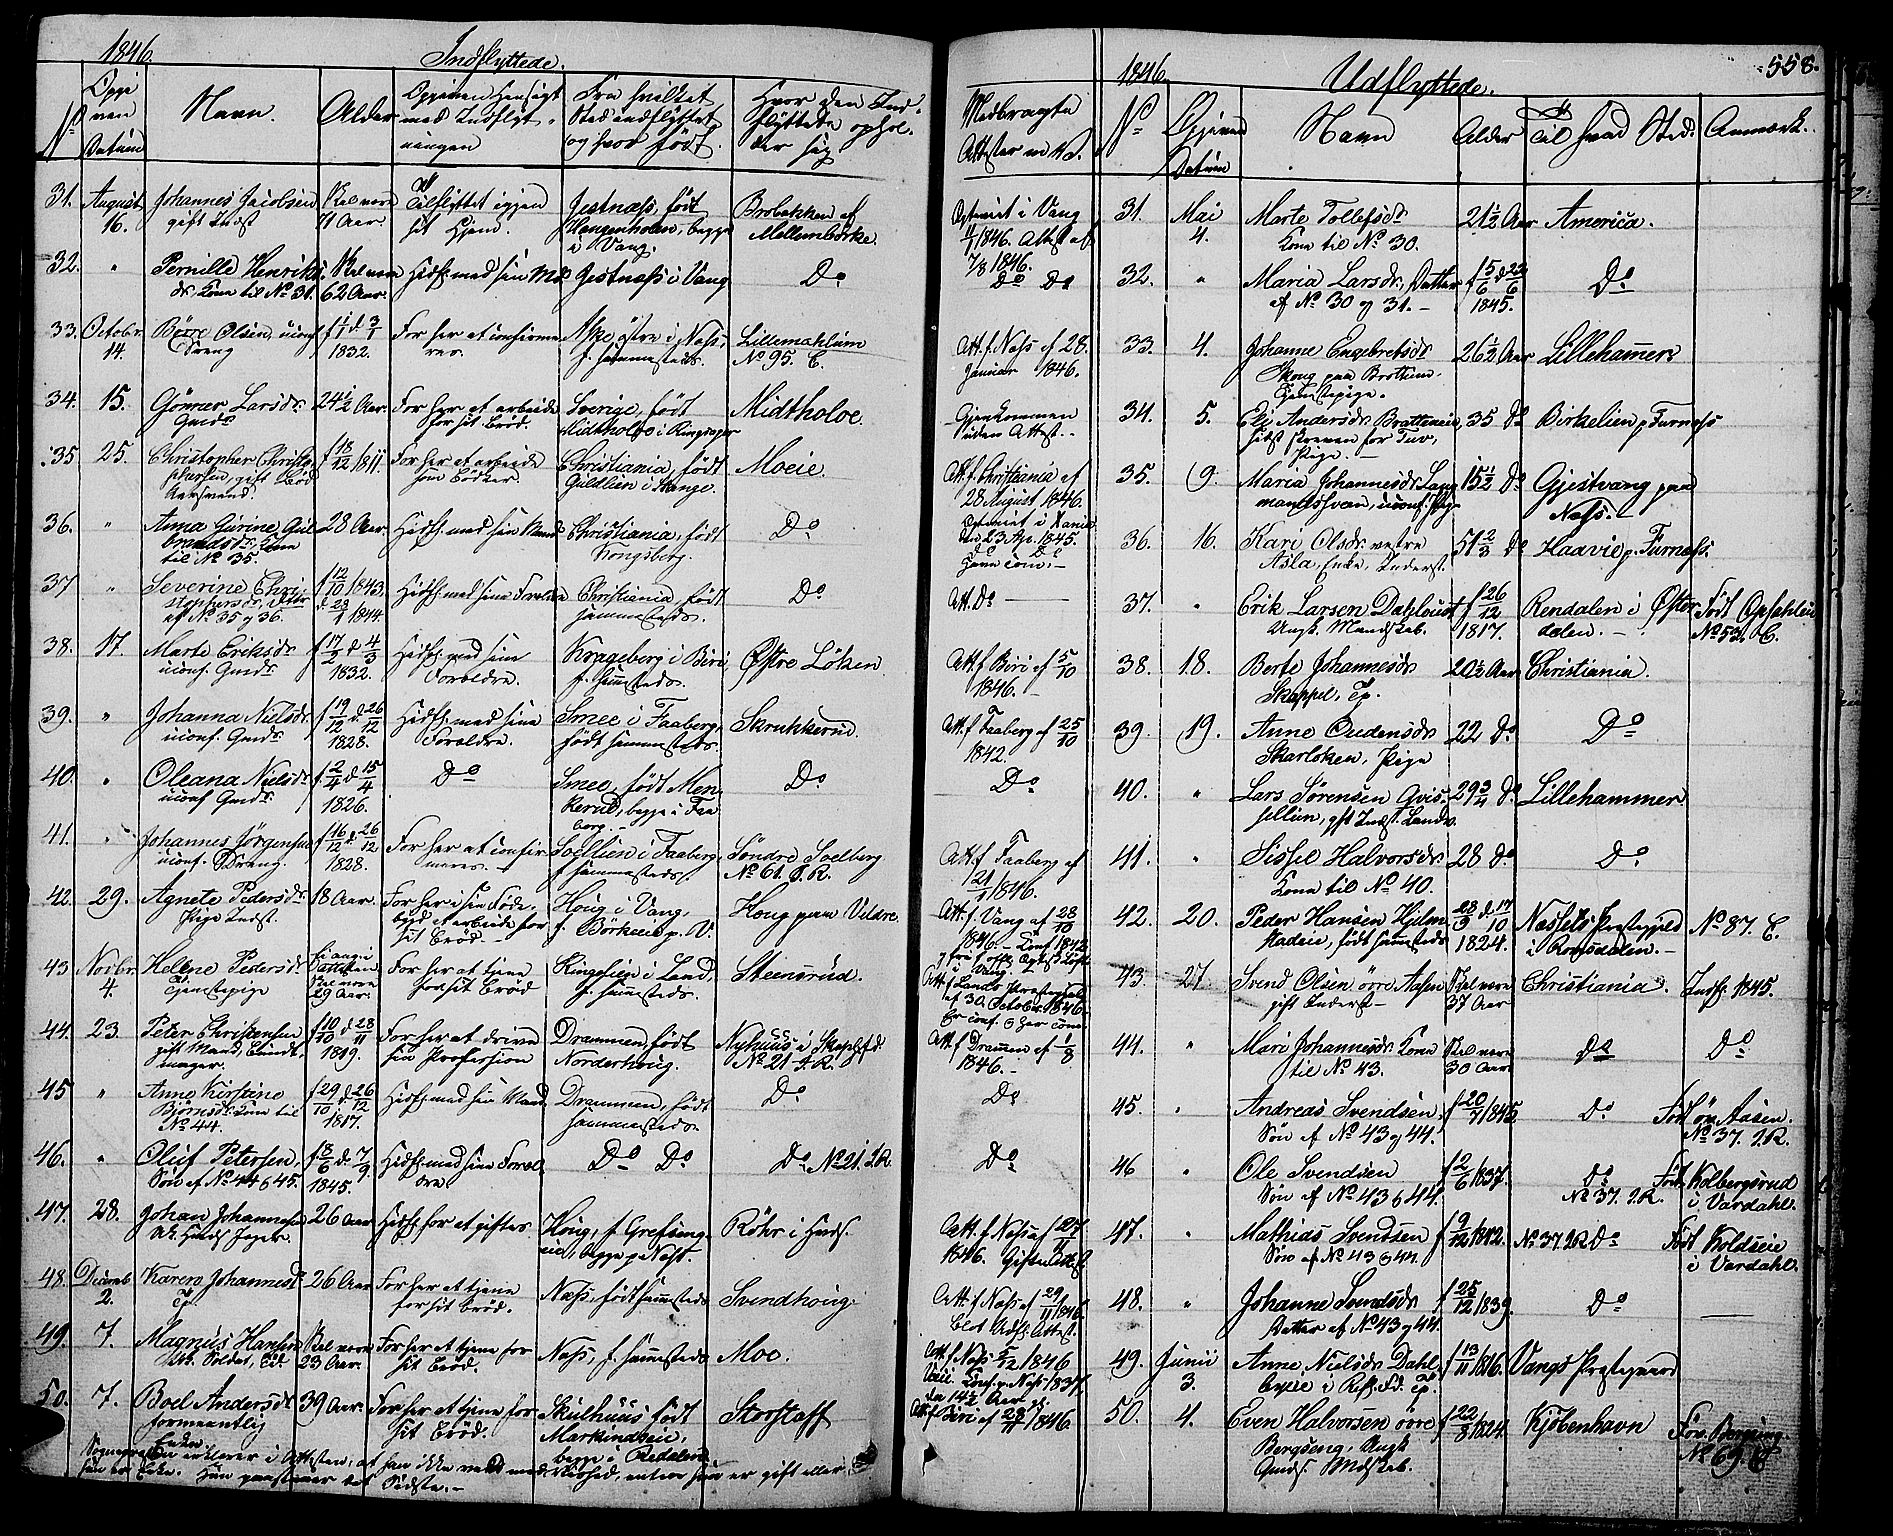 1846.
Indflyttede.
No
Opgiven Datum
Navn.
Alder
Opgiven Hensigt med Indflytningen
Fra hvilket Sted indflyttet og hvor født.
Hvor den Indflyttede opholder sig.
Medbragte Attester m. V.
31. August 16. Johannes Jacobsen gift Indst
Skal være 71 Aar.
Tilflyttet igjen sit Hjem.
Gestnæss, født Hangenholen, begge i Vang.
Brobakken af Mellembørke.
i Vang 1846. Attest af 7/8 1846.
32. " Pernille Henriks dr, Kone til No 31.
Skal være 62 Aar.
Hidfl. med sin Md
Gestnæss i Vang
Do
Do Do
33. Octobr 14. Børre Olsen, uconf Dreng
1832.
For her at confirmeres.
østre i Næss, f. sammesteds.
Lillemæhlum No 95. C.
Att. f. Næss af 28. Januar 1846.
34. 15. Larsdr.
24 1/2 Aar.
For her at arbeide for sit Brød.
Sverige, født Midtholoe i Ringsager
Midtholoe.
Gjenkommen uden Att.
35 25. Christopher Christophersen, gift
f 18/12 1811.
For her at arbeide som Bødker.
Christiania, født Guldlien i Stange.
Moeie.
Att. f. Christiania af 28 August 1846.
36. " Anna Gurine Gulbrandsdr. Kone til No 35.
28 Aar.
Hidfl. med sin Mand
Christiania, født Kongsberg.
Do
37 " Severine Christophersdr, Datter af No 35 og 36.
f 12/10 1843. d 1844.
Hidfl. med sine Forældre
Christiania, født sammesteds.
Do
Att. Do
38. 17. Marte Eriksdr uconf.
f 17/2 d 4/3 1832.
Hidfl. med sine Forældre.
Krageberg i Biri, f. sammesteds.
Østre Løken
Att. f Biri af 5/10 1846.
39. " Johanna Nielsdr. uconf.
f 19/12 d. 26/12 1828.
Hidfl. med sine Forældre.
Smee i Faaberg, født sammesteds.
Skrukkerud.
Att. f Faaberg af 25/10 1842.
40. " Oleana Nielsdr. uconf
f 2/4 d 15/4 1826.
Do
Smee, født Men kerud, begge i Faaberg.
Do
Do
41. " Johannes Jørgensen uconf. Dreng.
f 16/12 d. 26/12 1828.
For her at confirmeres.
i Faaberg, f. sammesteds
Søndre Soelberg No 61. I. R.
Att. f Faaberg af 21/1 1846.
42. 29. Agnete Pedersdr Pige Indst.
18 Aar.
For her i sin Fødebygd at arbeide for sit Brød.
Houg i Vang,
Houg paa Veldre
Att. f. Vang af 28/10 1846.
43 Novbr. 4. Helene Pedersdr. Tjenstepige
Skal være 29 Aar.
For her at tjene for sit Brød
i Land, f. sammesteds.
Steensrud.
Att. f Lands Præstegjeld af 30. October 1846.
44. 23. Peter Christensen gift Mand, Bundtmager.
f 10/10 d 28/11 1819.
For her at drive sin Profession
Drammen, født Norderhoug.
Nyhuus i No 21 I. R.
Att. f Drammen af 1/8 1846.
45 " Anne Kirstine Bjørnsdr. Kone til No 44.
f 29/10 d 26/12 1817.
Hidfl. med sin Mand
Drammen, født sammesteds.
Do
Do
46. " Oluf Petersen Søn af No 44 & 45.
f 8/6 d. 7/9. 1845.
Hidfl. med sine Forældre
Do Do
Do No 21. I.R.
Do
47. 28. Johan Johannesen
26 Aar
Hidfl. for at giftes
Houg, f. begge paa Næss.
Røhr i
Att. f. Næss af 27/11 1846.
48. Decemb 2. Karen Johannesdr Tp.
26 Aar
For her at tjene for sit Brød.
Næss, født sammesteds
Svendhoug
Att. f Næss af 29/11 1846.
49. 7. Magnus Hansen Soldat,
Skal være 23 Aar.
For her at tjene for sit Brød.
Næss, f. sammesteds
Moe.
Att. f Næss 5/12 1846
50. 7. Boel Andersdr formeentlig Enke
39 Aar.
For her at tjene for sit Brød.
Skulhuus født Markindseie, begge i Redalen
Storstaff
Att. f Biri af 1846.
1846.
Udflyttede.
558.
No
Opgiven Datum
Navn
Alder
Til hvad Sted.
Anmærk.
31. Mai 4. Marte Tollefsdr Kone til No 30.
21 1/2 Aar
America.
32. " Maria Larsdr, Datter af No 30 og 31.
f 5/6 d 22/6 1845.
Do
33. 4. Johanne Engebretsdr Skoug paa Brøttum. Tjenstepige.
26 1/2 Aar
Lillehamer
34. 5. Eli Andersdr. Pige
35 Do
Birkelien p. Furnæss
35. 9 Maria Johannesdr.
15 1/2 Do
Gjestvang paa Næss.
36. 16. Kari Olsdr. vestre Asla, Enke, Inderst.
51 2/3 Do
Haavie p. Furnæss.
37. " Erik Larsen Dahlquist Ungk. Mandskab.
f 26/12 1817.
Rendalen i Østerdalen.
Født Opsahleie No 52. C.
38. 18. Berte Johannesdr Skappel, Tp.
20 1/2 Aar
Christiania.
39. 19. Anne Oudensdr Skarløken, Pige
22 Do
Do
40. " Lars Sørensen gft Indst.
29 3/4 Do
Lillehammer
41. " Sissel Halvorsdr Kone til No 40.
28 Do
Do
42. 20. Peder Hansen Hjelmstadeie, født sammesteds
28/9 d. 17/10 1824.
Næssets Præstegjeld i Romsdalen.
No 87. C.
43. 27. Svend Olsen øvre Aasen gift Inderst
Skal være 37 Aar
Christiania
Indfl. 1845.
44. " Mari Johannesdr Kone til No 43.
Skal være 30 Aar
Do
Do
45. " Andreas Svendsen, Søn af No 43 og 44.
f 20/7 1845
Do
Født øv. Aasen. No 37. I.R.
46 " Ole Svendsen Søn af No 43 & 44.
f 2/6 1837.
Do No 37. I.R.
Født Kolbergsrud i Vardahl.
47. " Mathias Svendsen Søn af No 43 & 44.
f 9/12 1842.
No 37. I R Do
Født Koldseie i Vardahl.
48. " Johanne Svendsdr Datter af No 43 og 44.
f 25/12 1839.
Do
49. Junii 3. Anne Nielsdr Dahl
f 13/11 1816.
Vangs Præstegjeld
50. 4. Even Halvorsen øvre Bergseng, Ungk
f 22/8 1824.
Kjøbenhavn
No 69. C